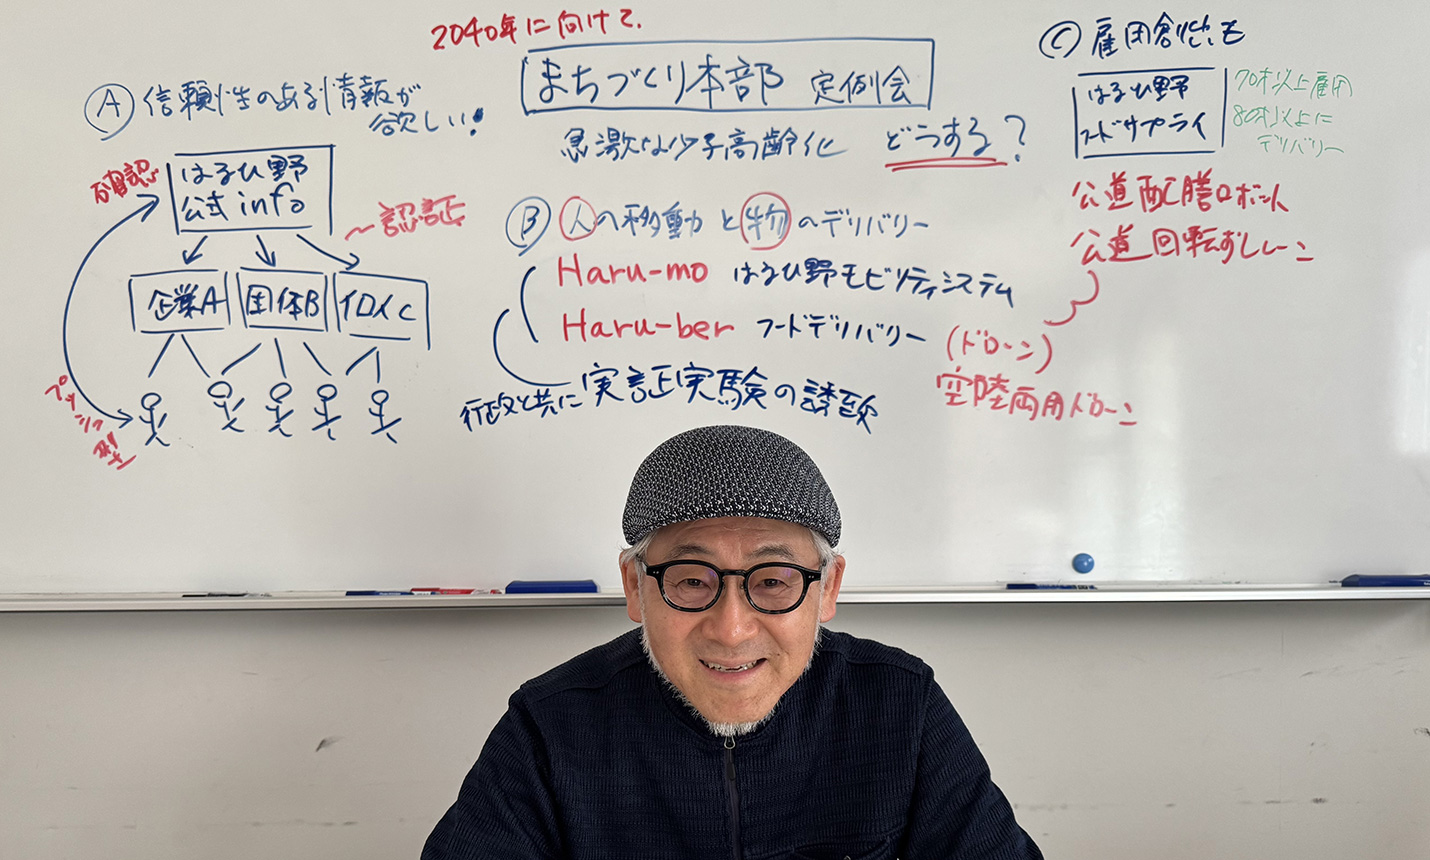 2040年に向けて、
まちづくり本部 定例会
急激な少子高齢化 どうする?
Ⓐ 信頼性のある情報が
欲しい!
確認
はるひ野
公式info
〜認証
企業A
団体B
イロイC
プッシュ型
Ⓑ 人の移動と物のデリバリー
Haru-mo はるひ野モビリティシステム
Haru-ber フードデリバリー
行政と共に実証実験の誘致
Ⓒ 雇用創出も
はるひ野
フードサプライ
70才以上雇用
80才以上に
デリバリー
公道配膳ロボット
公道回転ずしレーン
(ドローン)
空陸両用ドローン